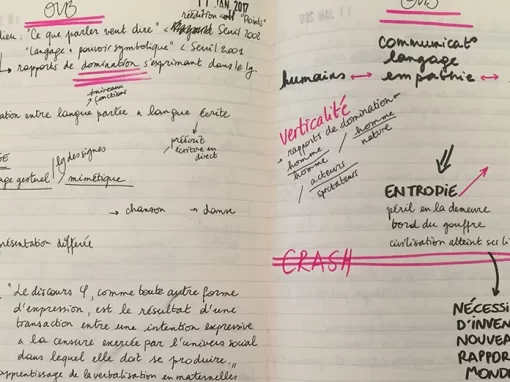 OVB
11 JAN. 2017
réédition coll "Points"
dieu : "Ce que parler veut dire" Seuil 2002
"Langage & pouvoir symbolique" Seuil 2001
↳ rapports de domination s'exprimant dans le lg
ation entre langue parlée & langue écrite
prescrit
écriture en direct
lg des signes
age gestuel / mimétique
→ chanson → danse
présentation différée
"Le discours φ, comme toute autre forme
d'expression, est le résultat d'une
transaction entre une intention expressive
& la censure exercée par l'univers social
dans lequel elle doit se produire.„
apprentissage de la verbalisation en maternelles
OVB
communicat°
langage
humains ↔ empathie ↔
verticalité
rapports de domination
homme / homme
homme nature
/ acteurs
spectateurs
ENTRODIE
péril en la demeure
bord du gouffre
civilisation atteint ses li
CRASH
NÉCESSI
D'INVEN
NOUVEA
RAPPOR
MOND